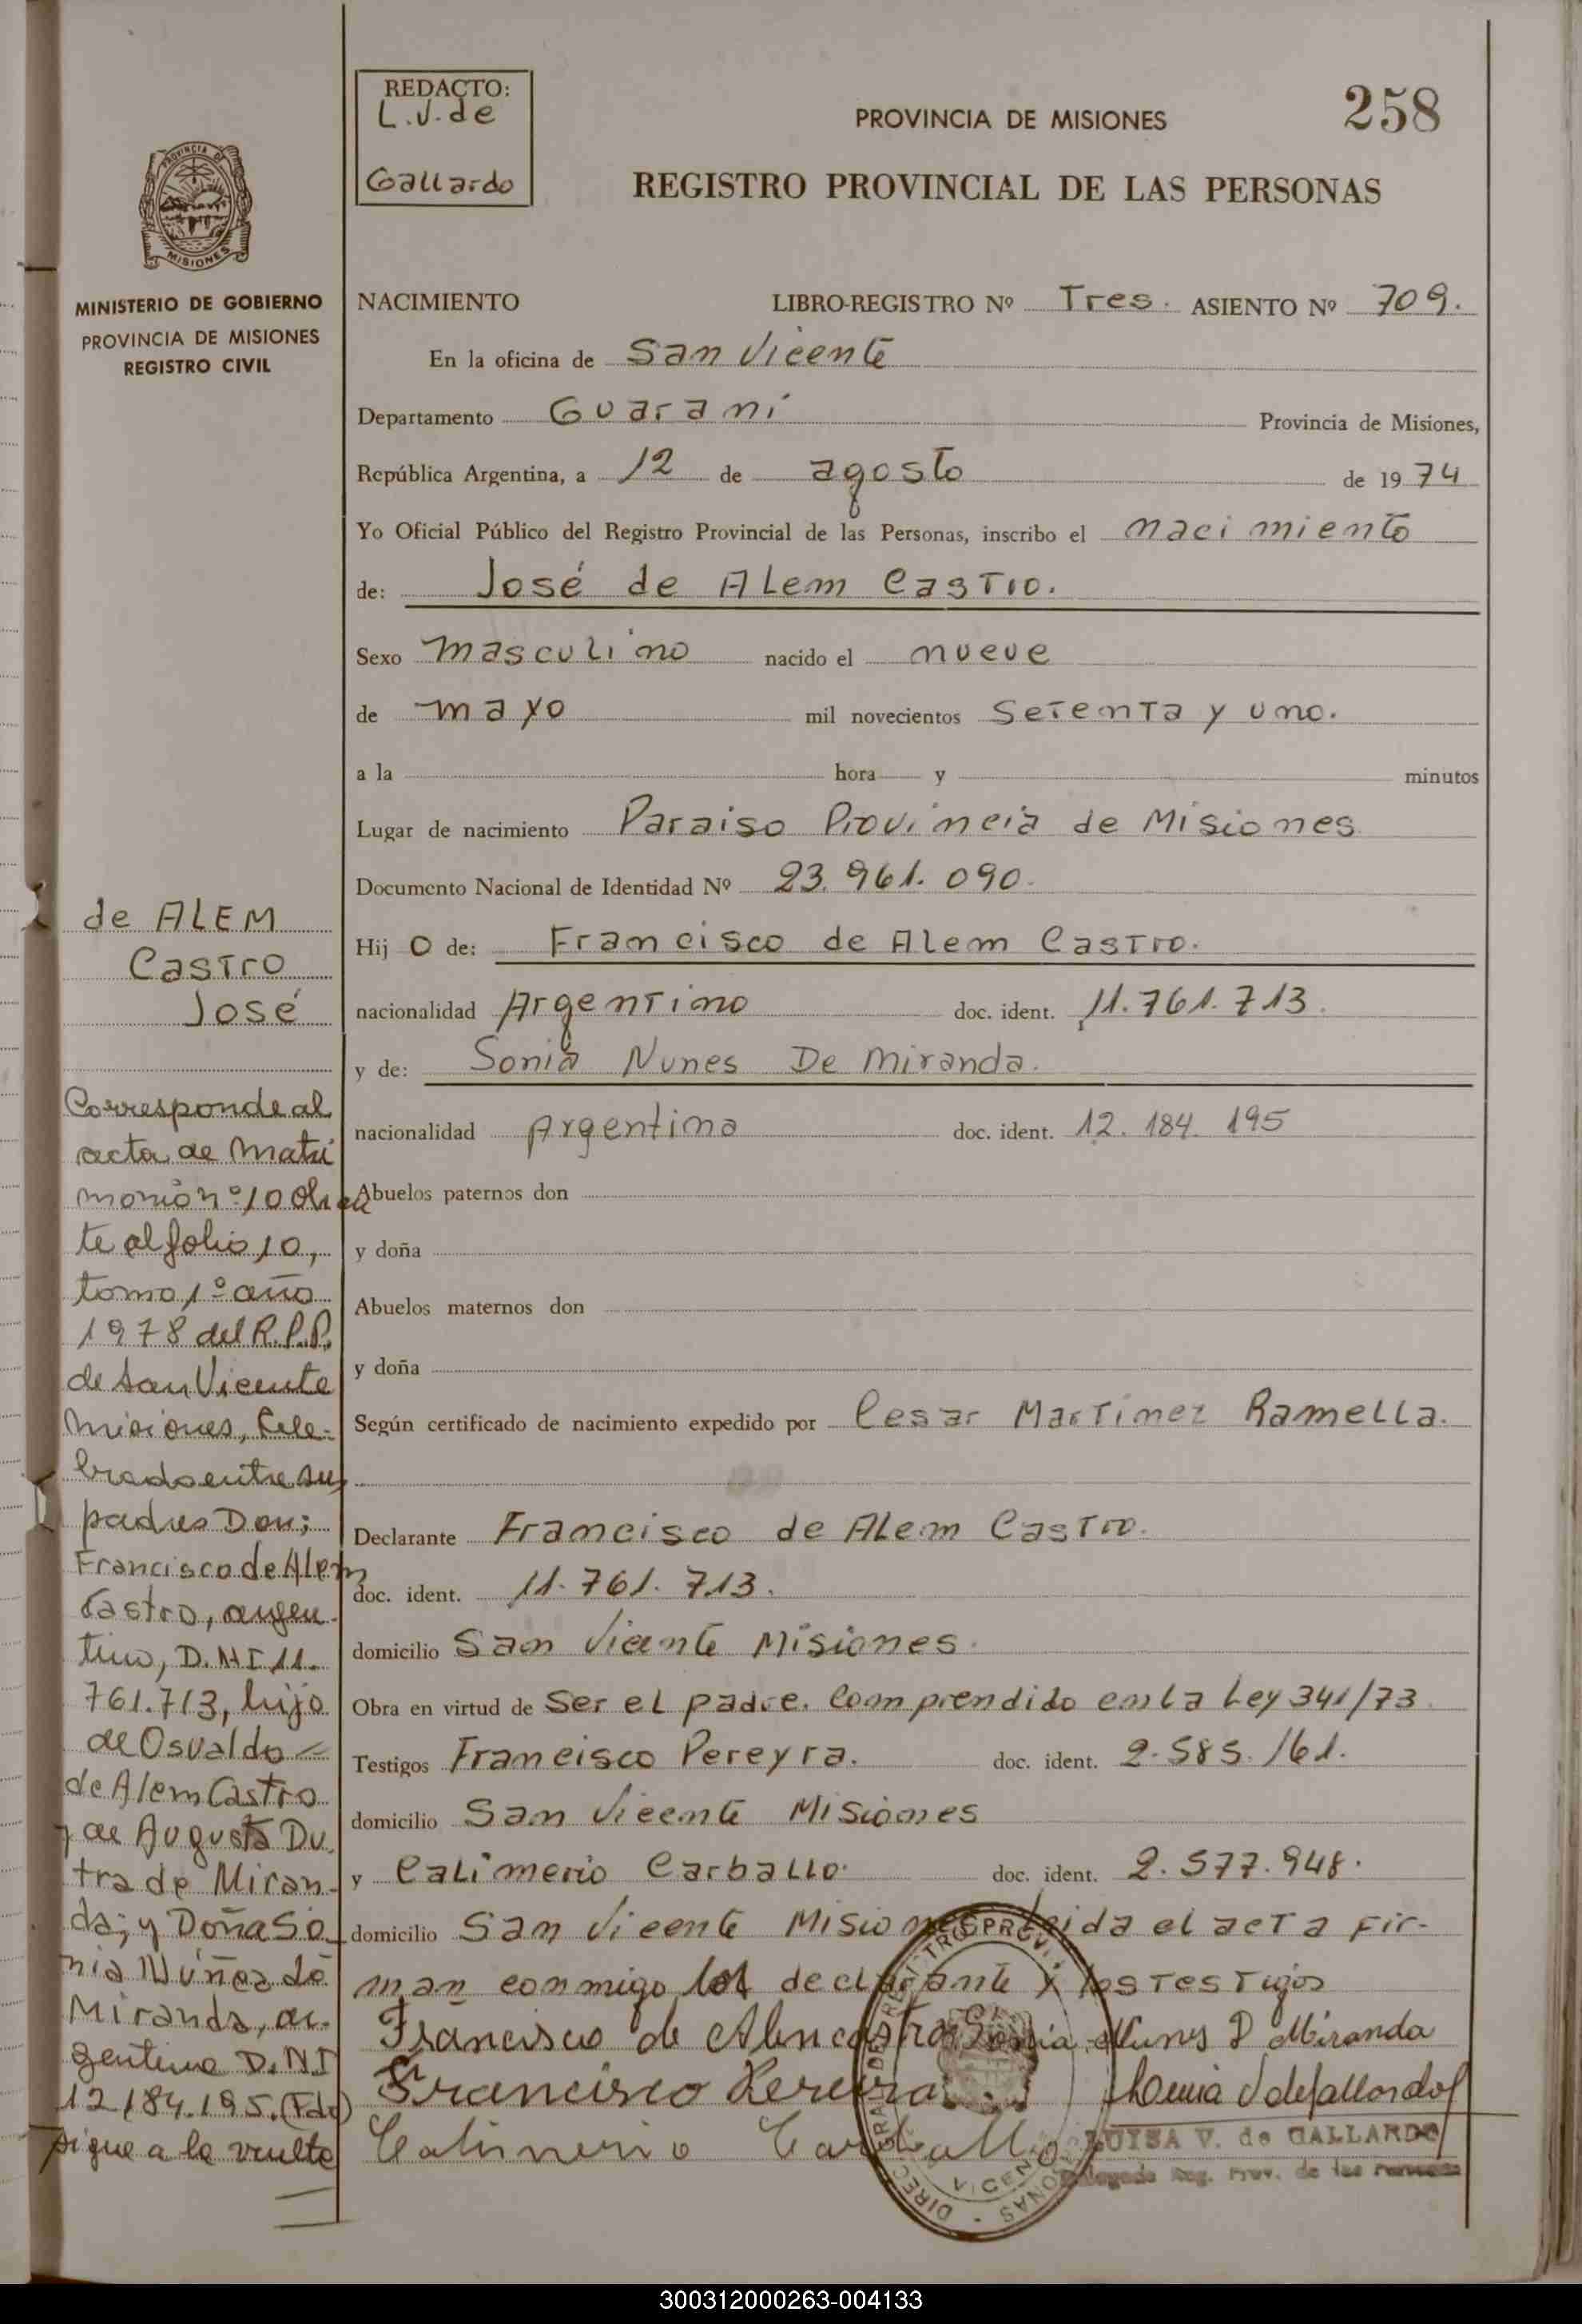 REDACTO:
L.V. de
Gallardo
PROVINCIA DE MISIONES
258
REGISTRO PROVINCIAL DE LAS PERSONAS
PROVINCIA DE
MISIONES
MINISTERIO DE GOBIERNO
PROVINCIA DE MISIONES
REGISTRO CIVIL
NACIMIENTO LIBRO-REGISTRO Nº Tres. ASIENTO Nº 709.
En la oficina de San Vicente
Departamento Guaraní Provincia de Misiones,
República Argentina, a 12 de agosto de 1974
Yo Oficial Público del Registro Provincial de las Personas, inscribo el nacimiento
de: José de Alem Castro.
Sexo masculino nacido el nueve
de mayo mil novecientos setenta y uno.
a la hora y minutos
Lugar de nacimiento Paraiso Provincia de Misiones
Documento Nacional de Identidad Nº 23.961.090.
Hij o de: Francisco de Alem Castro.
nacionalidad Argentino doc. ident. 11.761.713.
y de: Sonia Nunes De Miranda.
nacionalidad Argentina doc. ident. 12.184.195
Abuelos paternos don
y doña
Abuelos maternos don
y doña
Según certificado de nacimiento expedido por Cesar Martinez Ramella.
Declarante Francisco de Alem Castro.
doc. ident. 11.761.713.
domicilio San Vicente Misiones.
Obra en virtud de ser el padre. Comprendido en la Ley 341/73.
Testigos Francisco Pereyra. doc. ident. 2.585.161.
domicilio San Vicente Misiones
y Calimerio Carballo. doc. ident. 2.577.948.
domicilio San Vicente Misiones leida el acta fir-
man conmigo los declarante y los testigos
Francisco de Alencastro Sonia Nunes D Miranda
Francisco Pereira Luisa V de Gallardo
Calimerio Carballo
LUISA V. de GALLARDO
Delegada Reg. Prov. de las Personas
de ALEM
Castro
José
Corresponde al
acta de Matri
monio nº 10 obran
te al folio 10,
tomo 1º año
1978 del R.P.P.
de San Vicente
Misiones, Cele-
brado entre sus
padres Don;
Francisco de Alem
Castro, argen-
tino, D.N.I 11.
761.713, hijo
de Osvaldo
de Alem Castro
y de Augusta Du
tra de Miran-
da; y Doña So
nia Núñez de
Miranda, ar-
gentina D.N.I
12.184.195. (Fdo)
sigue a la vuelta
300312000263-004133